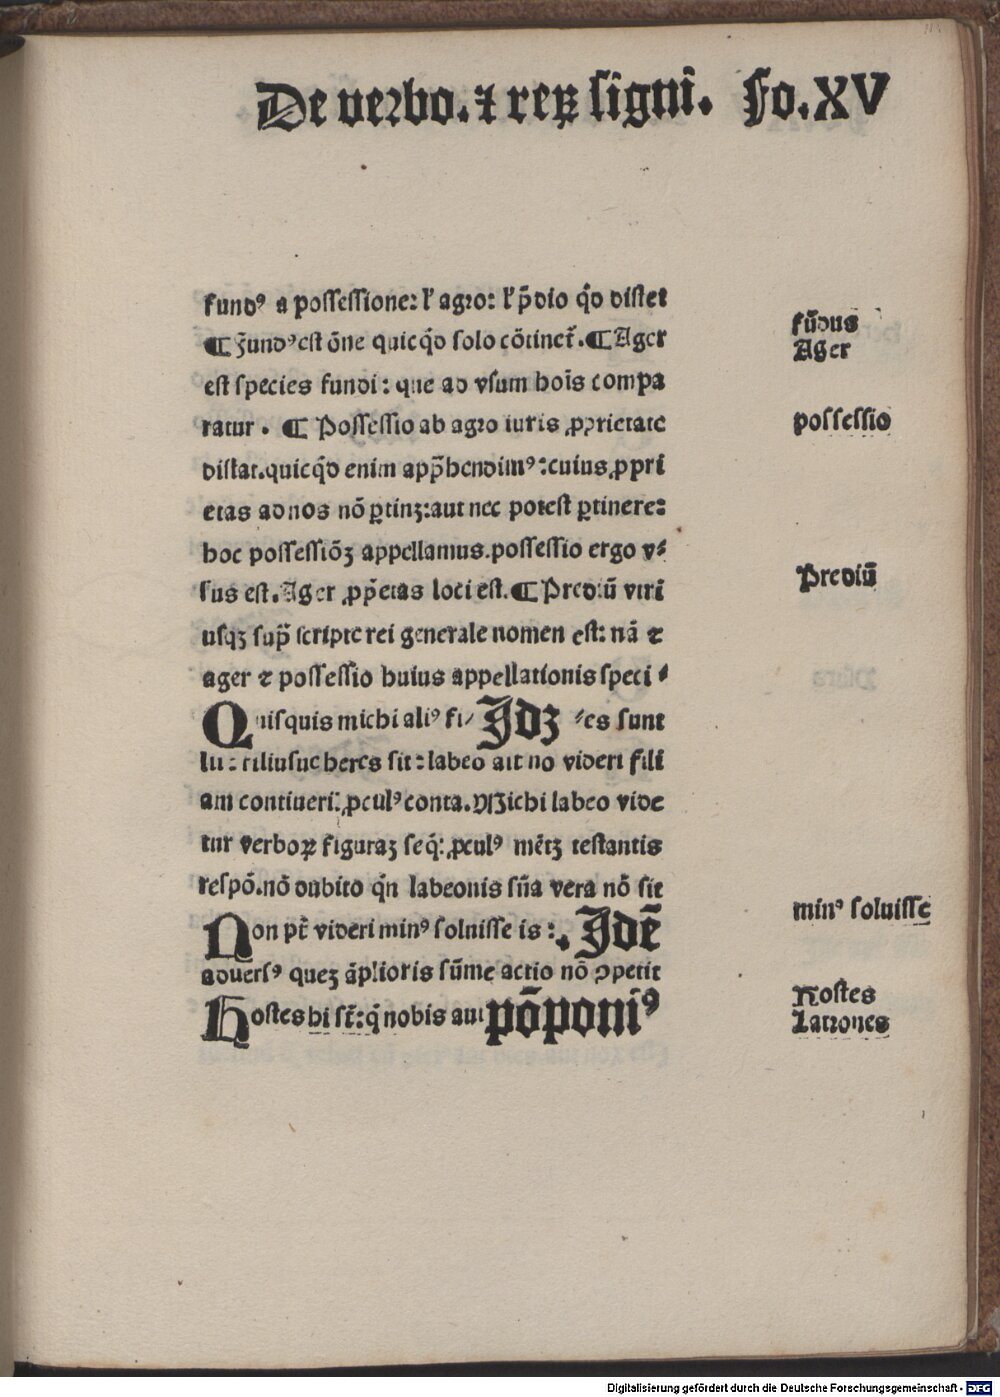 De verbo. ⁊ reꝝ signi. Fo. XV
fundꝰ a possessione: l' agro: l' p̄dio qd̓ distet
¶ Fundꝰ est ōne quicqd̓ solo cōtinet᷑. ¶ Ager
est species fundi: que ad vsum hoīs compa
ratur. ¶ Possessio ab agro iuris ꝓprietate
distat. quicqd̓ enim app̄hendimꝰ: cuius ꝓpri
etas ad nos nō ꝑtinꝫ: aut nec potest ꝑtinere:
hoc possessiōꝫ appellamus. possessio ergo v⸗
sus est. Ager ꝓp̄etas loci est. ¶ Prediū vtri
usqꝫ sup̄ scripte rei generale nomen est: nā ⁊
ager ⁊ possessio huius appellationis speci⸗
Quisquis michi aliꝰ fi⸗ Jdꝫ ⸗es sunt
li: filiusue heres sit: labeo ait no videri fili
am contineri: ꝓculꝰ conta. Michi labeo vide
tur verboꝝ figuraꝫ seq̄: ꝓculꝰ mētꝫ testantis
respō. nō dubito qn̄ labeonis sn̄a vera nō sit
Non pt̄ videri minꝰ soluisse is: Jdē
aduersꝰ queꝫ āplioris sūme actio nō ꝯpetit
Hostes hi st̄: q̄ nobis aut pōponiꝰ
fūdus
Ager
possessio
Prediū
minꝰ soluisse
Hostes
Latrones
Digitalisierung gefördert durch die Deutsche Forschungsgemeinschaft - DFG